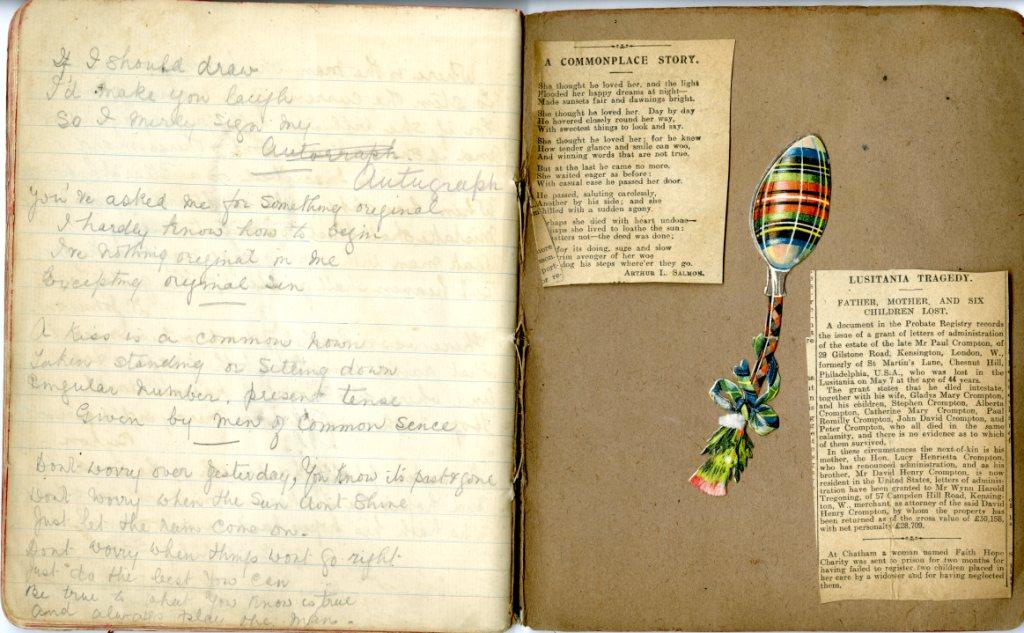 If I should draw
I'd make you laugh
So I merely sign my
Autograph
Autugraph
You've asked me for Something original
I hardly know how to begin
I've nothing original in me
Excepting original Sin
A Kiss is a common noun
Taken standing or Sitting down
Singular number, present tense
Given by men of Common Sence
Dont worry over Yesterday, You know it's past & gone
Dont worry when the Sun dont Shine
Just let the rain come on.
Dont worry when things wont go right
Just do the best you can
Be true to what you know is true
And always play the man.
A COMMONPLACE STORY.
She thought he loved her, and the light
Flooded her happy dreams at night—
Made sunsets fair and dawnings bright.
She thought he loved her. Day by day
He hovered closely round her way,
With sweetest things to look and say.
She thought he loved her; for he knew
How tender glance and smile can woo,
And winning words that are not true.
But at the last he came no more.
She waited eager as before:
With casual ease he passed her door.
He passed, saluting carelessly,
Another by his side; and she
chilled with a sudden agony.
haps she died with heart undone—
haps she lived to loathe the sun:
atters not—the deed was done;
for its doing, sure and slow
rim avenger of her woe
ding his steps where'er they go.
ARTHUR L. SALMON.
LUSITANIA TRAGEDY.
FATHER, MOTHER, AND SIX
CHILDREN LOST.
A document in the Probate Registry records
the issue of a grant of letters of administration
of the estate of the late Mr Paul Crompton, of
29 Gilstone Road, Kensington, London, W.,
formerly of St Martin's Lane, Chesnut Hill,
Philadelphia, U.S.A., who was lost in the
Lusitania on May 7 at the age of 44 years.
The grant states that he died intestate,
together with his wife, Gladys Mary Crompton,
and his children, Stephen Crompton, Alberta
Crompton, Catherine Mary Crompton, Paul
Romilly Crompton, John David Crompton, and
Peter Crompton, who all died in the same
calamity, and there is no evidence as to which
of them survived.
In these circumstances the next-of-kin is his
mother, the Hon. Lucy Henrietta Crompton,
who has renounced administration, and as his
brother, Mr David Henry Crompton, is now
resident in the United States, letters of adminis-
tration have been granted to Mr Wynn Harold
Tregoning, of 57 Campden Hill Road, Kensing-
ton, W., merchant, as attorney of the said David
Henry Crompton, by whom the property has
been returned as of the gross value of £30,158,
with net personalty £28,709.
At Chatham a woman named Faith Hope
Charity was sent to prison for two months for
having failed to register two children placed in
her care by a widower and for having neglected
them.